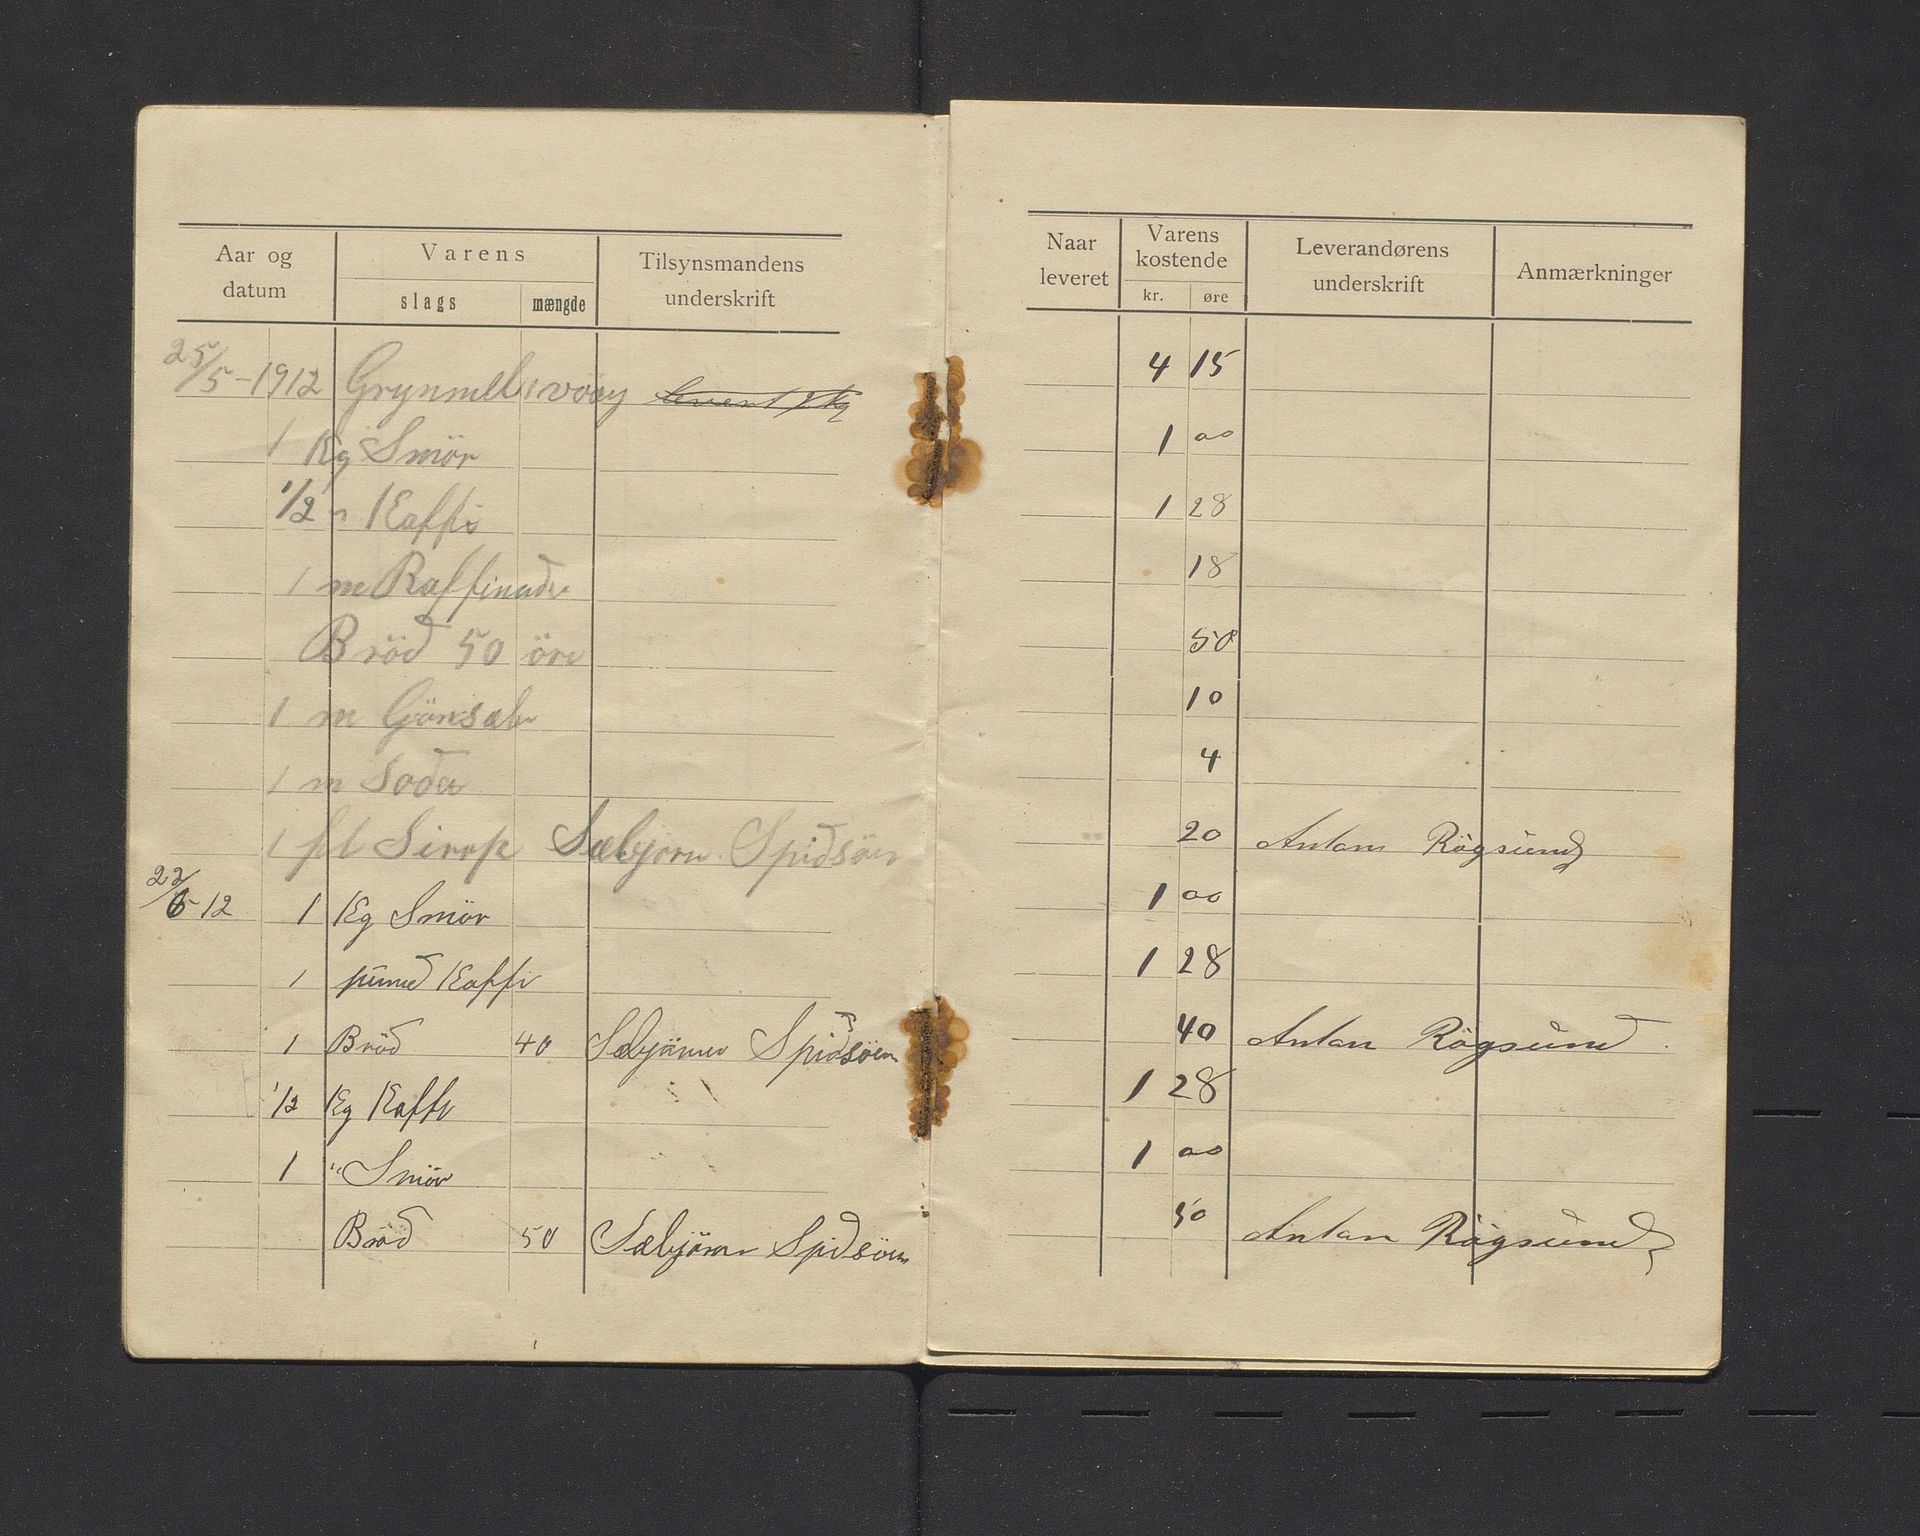 Aar og datum
Varens
slags
mængde
Tilsynsmandens underskrift
25/5-1912 Grynmel 1 voag
1 Kg Smör
1/2 " Kaffi
1 m Raffinade
Bröd 50 öre
1 m Grönsæbe
1 m Soda
1 fl Sirop Sæbjørn Spidsöen
22/6-12 1 Kg Smör
1 pund Kaffi
1 Bröd 40 Sæbjörn Spidsöen
1/2 Kg Kaffi
1 " Smör
Bröd 50 Sæbjörn Spidsöen
Naar leveret
Varens kostende
kr.
øre
Leverandørens underskrift
Anmærkninger
4 15
1 00
1 28
18
50
10
4
20 Antan Rögsund
1 00
1 28
40 Antan Rögsund
1 28
1 00
50 Antan Rögsund